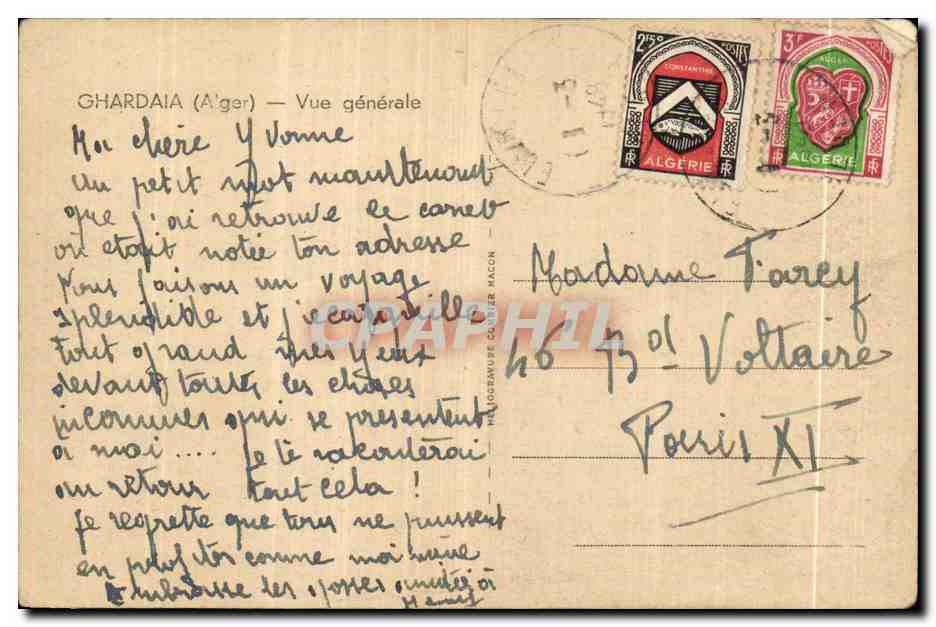 GHARDAIA (A'ger) — Vue générale
Ma chère Yvonne
un petit mot maintenant
que j'ai retrouvé le carnet
où était notée ton adresse
Nous faisons un voyage
splendide et j'écarquille
tout grand mes yeux
devant toutes les choses
inconnues qui se présentent
à moi .... Je te raconterai
au retour tout cela !
Je regrette que tous ne puissent
en profiter comme moi même
Embrasse les gosses amitiés à
HELIOGRAVURE COMBIER MACON
2F50 POSTES
CONSTANTINE
ALGÉRIE
RF RF
3F POSTES
ALGER
ALGÉRIE
RF RF
1 -3
Madame Farcy
46 Bd Voltaire
Paris XI
CPAPHIL